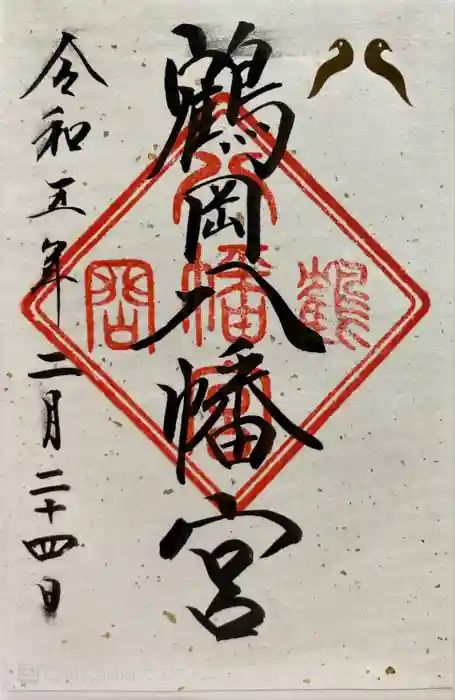 鶴岡八幡宮
令和五年二月二十四日
鶴
岡
八
幡
宮